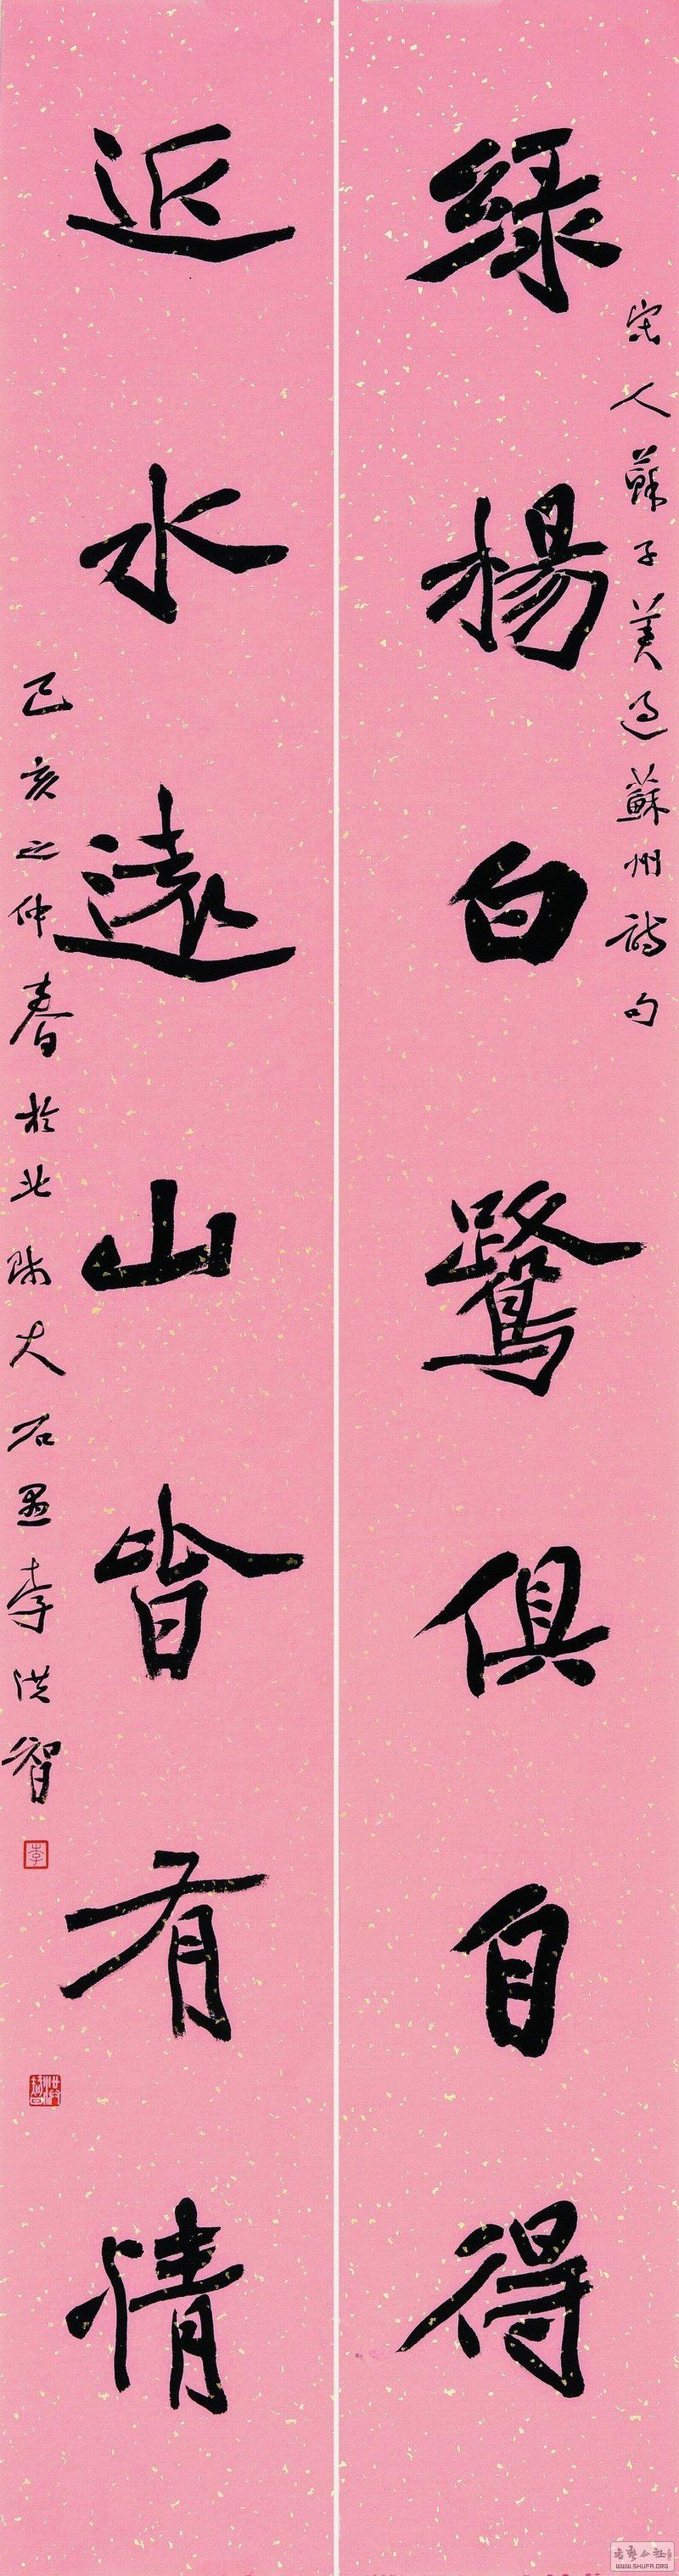 宋人蘇子美過蘇州詩句
綠楊白鷺俱自得
近水遠山皆有情
己亥之仲春於北師大石愚李洪智
李
洪智
WWW.SHUFA.ORG